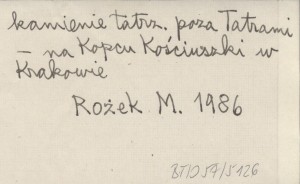 kamienie tatrz. poza Tatrami
– na Kopcu Kościuszki w
Krakowie
Rożek M. 1986
BTID 57/5126